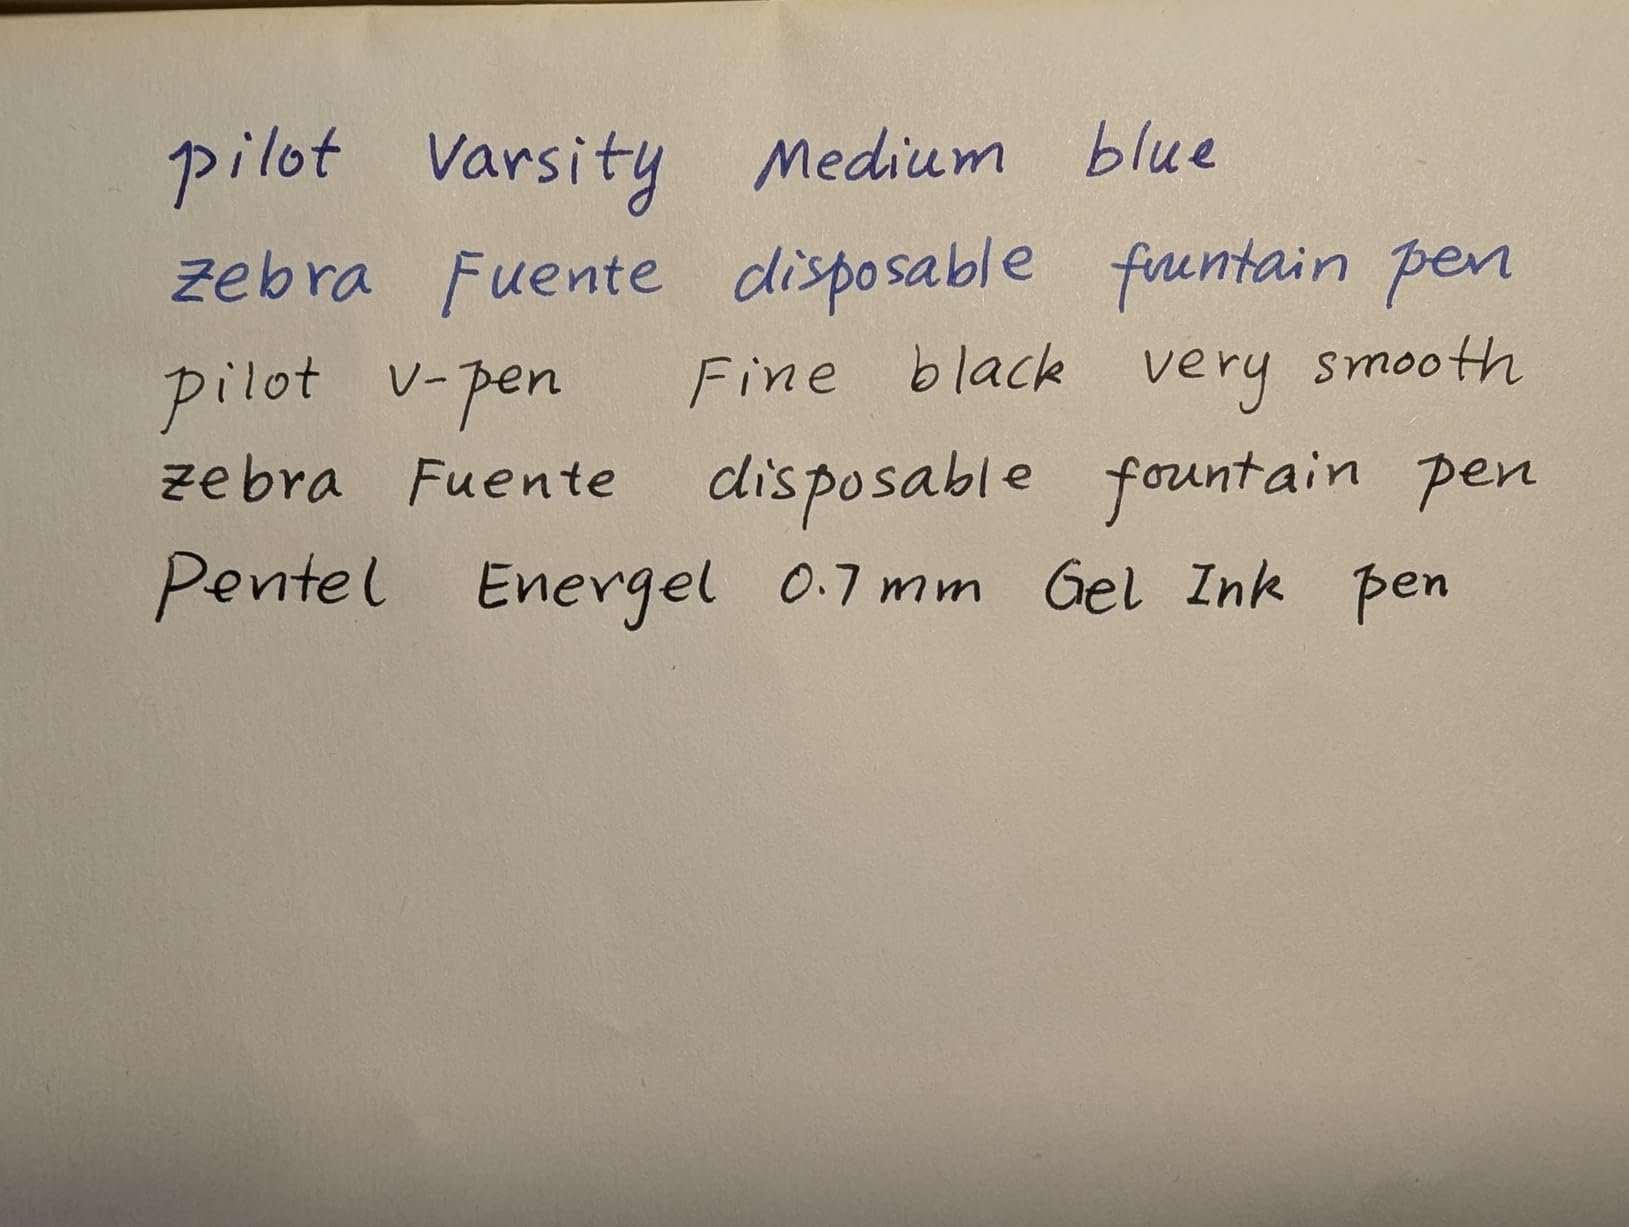 pilot Varsity Medium blue
zebra Fuente disposable fountain pen
pilot V-pen Fine black very smooth
zebra Fuente disposable fountain pen
Pentel Energel 0.7mm Gel Ink pen